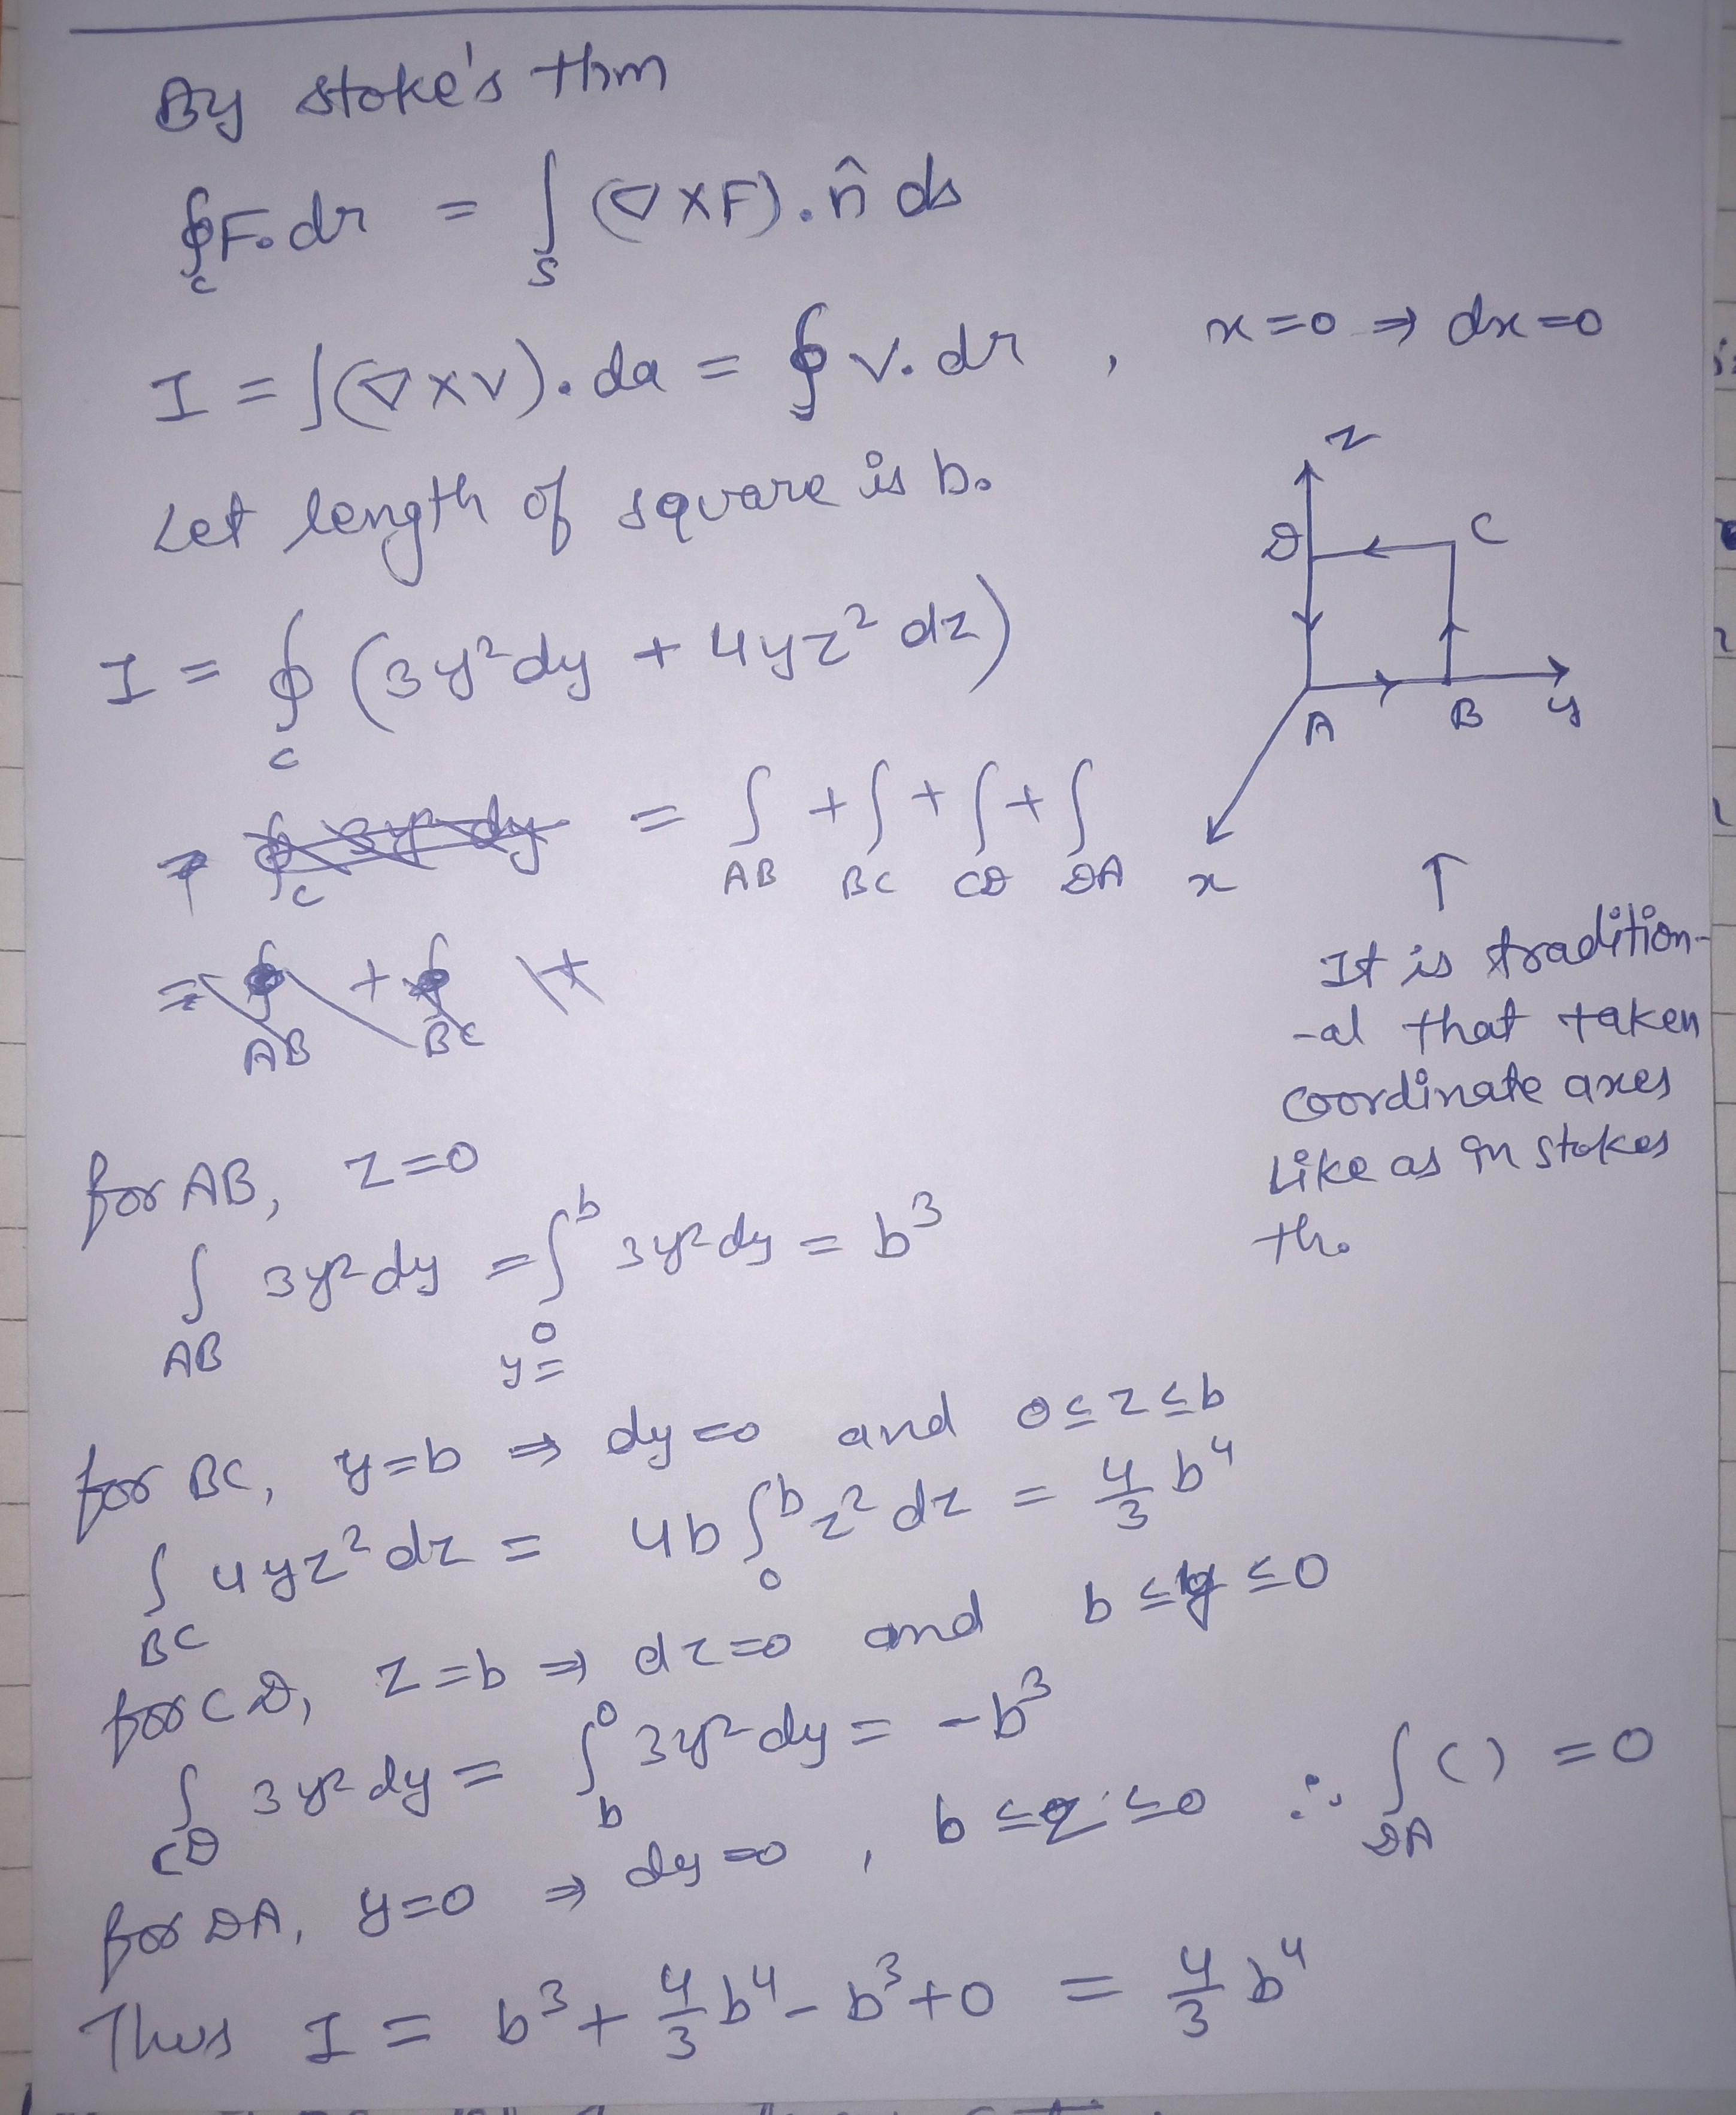 By Stoke's thm
∮_C F. dr = ∫_S (∇ × F). n̂ ds
I = ∫(∇ × v). da = ∮ v. dr , x = 0 ⇒ dx = 0
Let length of square is b.
z
D C
A B y
x
I = ∮_C (3y² dy + 4yz² dz)
= ∫_AB + ∫_BC + ∫_CD + ∫_DA
↑
It is tradition-
-al that taken
coordinate axes
like as in stokes
th.
for AB, z = 0
∫_AB 3y² dy = ∫_{y=0}^b 3y² dy = b³
for BC, y = b ⇒ dy = 0 and 0 ≤ z ≤ b
∫_BC 4yz² dz = 4b ∫_0^b z² dz = 4/3 b⁴
for CD, z = b ⇒ dz = 0 and b ≤ y ≤ 0
∫_CD 3y² dy = ∫_b^0 3y² dy = -b³
for DA, y = 0 ⇒ dy = 0 , b ≤ z ≤ 0 ∴ ∫_DA ( ) = 0
Thus I = b³ + 4/3 b⁴ - b³ + 0 = 4/3 b⁴